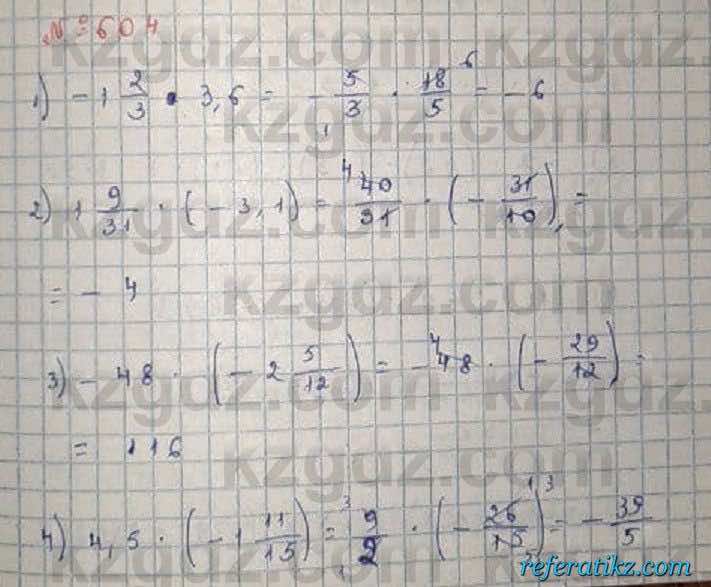 № 604
1) - 1 2/3 · 3,6 = - 5/3 · 18/5 = - 6
2) 1 9/31 · (- 3,1) = 40/31 · (- 31/10) =
= - 4
3) - 48 · (- 2 5/12) = - 48 · (- 29/12) =
= 116
4) 4,5 · (- 1 11/15) = 9/2 · (- 26/15) = - 39/5
kzgdz.com
referatikz.com